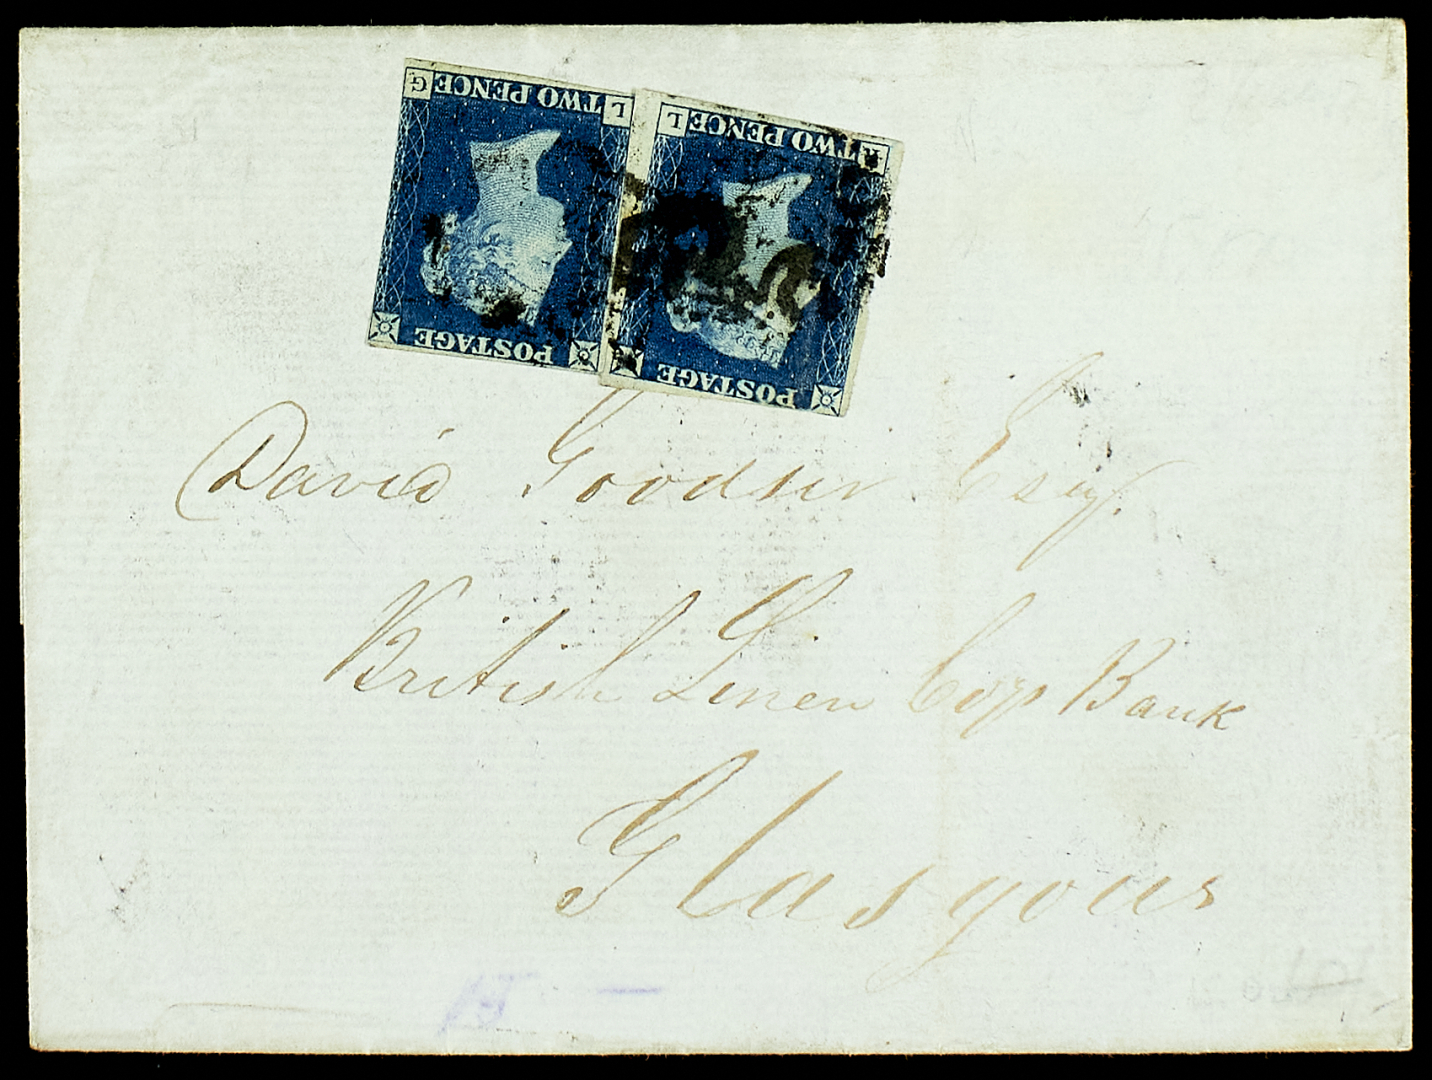 G TWO PENCE L
L TWO PENCE
POSTAGE
POSTAGE
David Goodsir Esqr.
British Linen Coys Bank
Glasgow